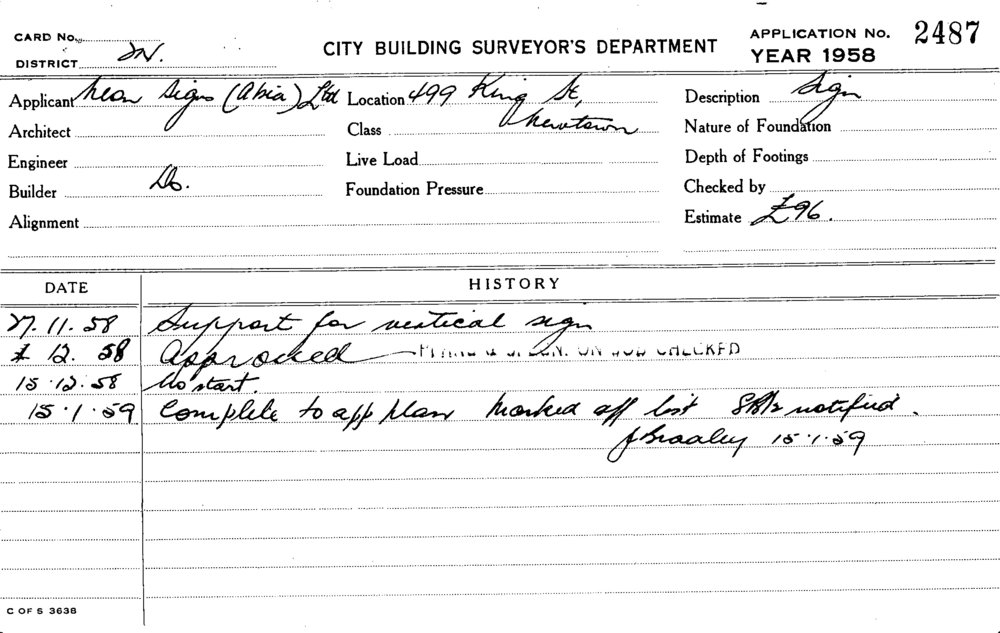 CARD No.
DISTRICT
CITY BUILDING SURVEYOR'S DEPARTMENT
APPLICATION No. 2487
YEAR 1958
Applicant Neon Signs (Asia) Ltd Location 499 King St, Description Sign
Architect Class Newtown Nature of Foundation
Engineer Live Load Depth of Footings
Builder Do. Foundation Pressure Checked by
Alignment Estimate £96.
DATE HISTORY
27.11.58 Support for vertical sign
12. 58 Approved PLANS & SPECN. ON JOB CHECKED
15.12.58 No start.
15.1.59 Complete to app plan Marked off list notified.
J Bradley 15.1.59
C OF S 3638